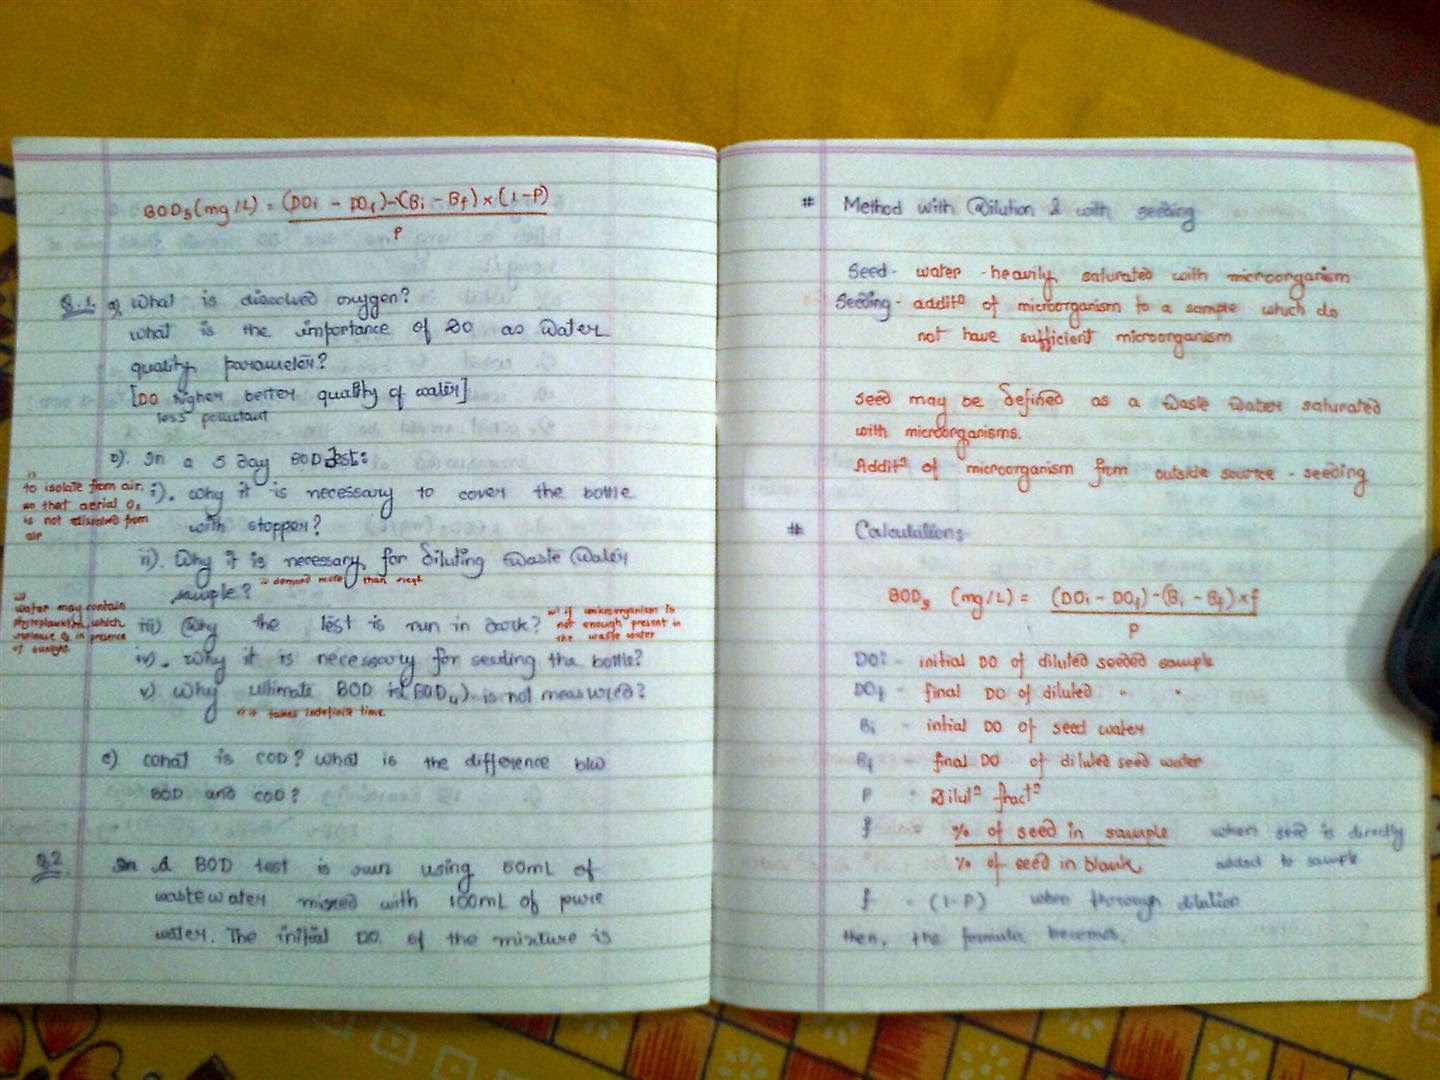 BOD5 (mg/L) = (DOi - DOf) - (Bi - Bf) × (1-P)
P
Q.1. a) What is dissolved oxygen?
what is the importance of DO as water
quality parameter?
[DO higher better quality of water]
less pollutant
b). In a 5 day BOD test:
i). why it is necessary to cover the bottle
with stopper?
i)
to isolate from air.
so that aerial O2
is not dissolved from
air
ii). Why it is necessary for diluting waste water
sample?
demand more than
iii) Why the test is run in dark?
water may contain
phytoplankton, which
release O2 in presence
of sunlight.
iv). Why it is necessary for seeding the bottle?
iv) if microorganism is
not enough present in
the waste water
v). Why ultimate BOD (BODu) is not measured?
v) it takes indefinite time.
c) what is COD? what is the difference b/w
BOD and COD?
Q.2. In A BOD test is run using 50mL of
wastewater mixed with 100mL of pure
water. The initial DO of the mixture is
# Method with Dilution & with seeding
Seed - water - heavily saturated with microorganism
Seeding - additn of microorganism to a sample which do
not have sufficient microorganism
seed may be defined as a waste water saturated
with microorganisms.
Additn of microorganism from outside source - seeding
# Calculation:-
BOD5 (mg/L) = (DOi - DOf) - (Bi - Bf) × f
P
DOi - initial DO of diluted seeded sample
DOf - final DO of diluted " "
Bi - intial DO of seed water
Bf - final DO of diluted seed water
P - Dilutn fractn
f = % of seed in sample when seed is directly
% of seed in blank added to sample
f = (1-P) when thorough dilation
then, the formula becomes.